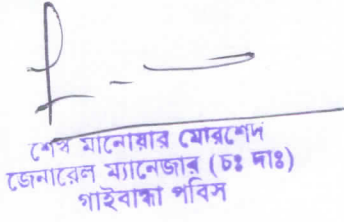 শেখ মানোয়ার মোরশেদ
জেনারেল ম্যানেজার (চঃ দাঃ)
গাইবান্ধা পবিস